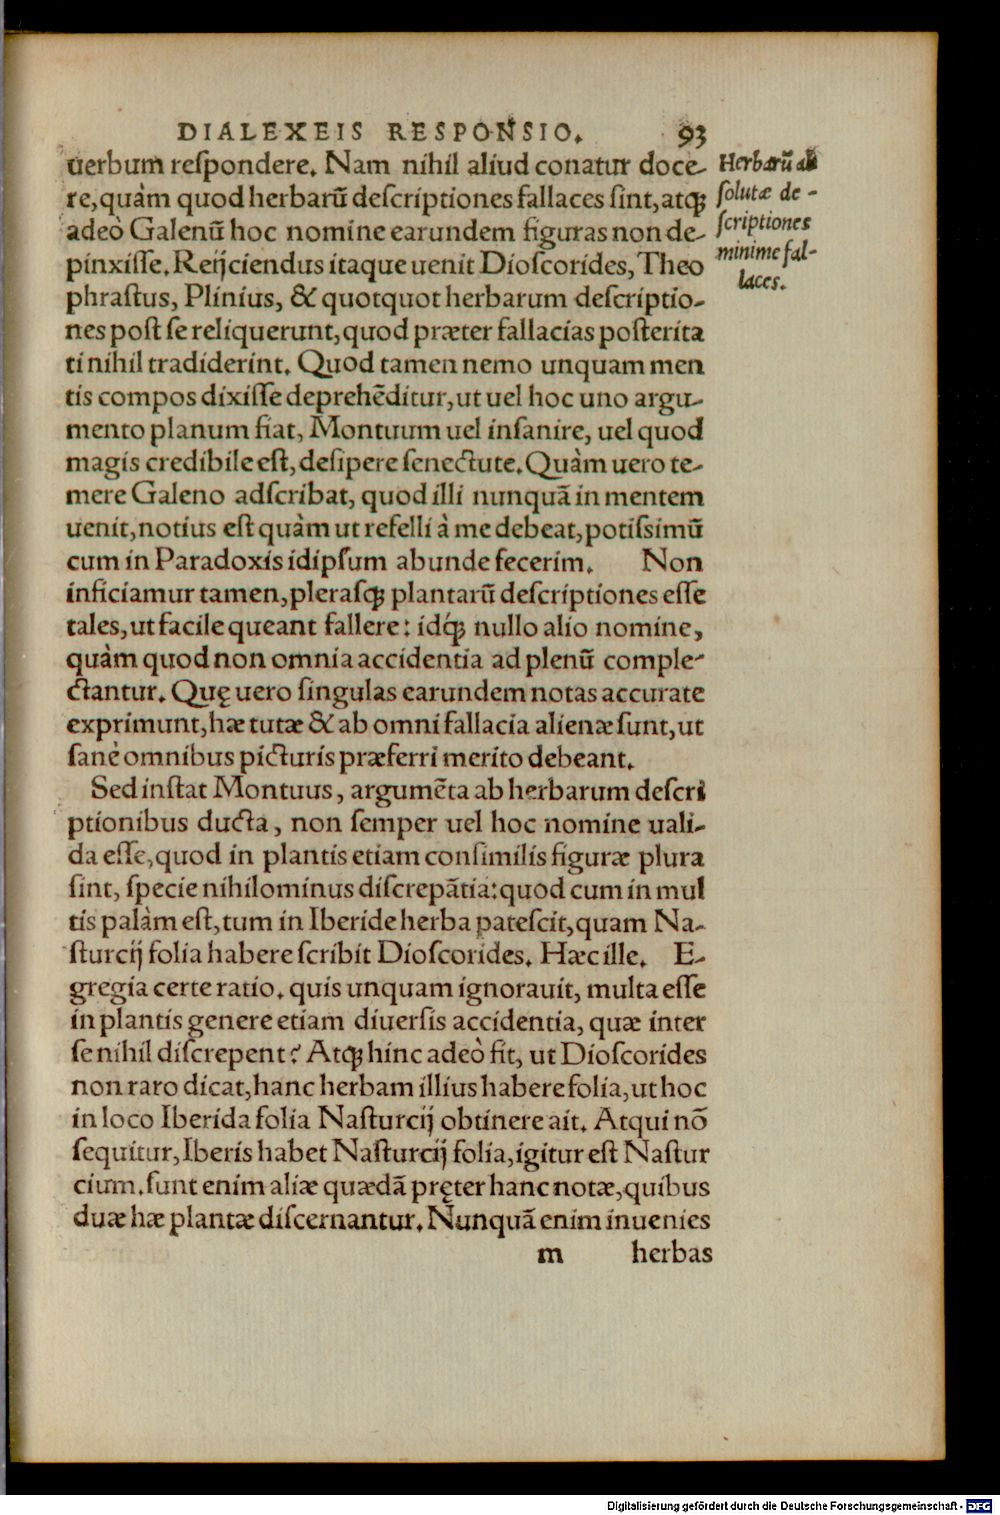 DIALEXEIS RESPONSIO. 93
uerbum reſpondere. Nam nihil aliud conatur doce-
re, quàm quod herbarū deſcriptiones fallaces ſint, atq́;
adeò Galenū hoc nomine earundem figuras non de-
pinxiſſe. Reijciendus itaque uenit Dioſcorides, Theo
phraſtus, Plinius, & quotquot herbarum deſcriptio-
nes poſt ſe reliquerunt, quod præter fallacias poſterita
ti nihil tradiderint. Quod tamen nemo unquam men
tis compos dixiſſe deprehēditur, ut uel hoc uno argu-
mento planum fiat, Montuum uel inſanire, uel quod
magis credibile eſt, deſipere ſenectute. Quàm uero te-
mere Galeno adſcribat, quod illi nunquā in mentem
uenit, notius eſt quàm ut refelli à me debeat, potiſsimū
cum in Paradoxis idipſum abunde fecerim. Non
inficiamur tamen, pleraſq; plantarū deſcriptiones eſſe
tales, ut facile queant fallere: idq́; nullo alio nomine,
quàm quod non omnia accidentia ad plenū comple-
ctantur. Quę uero ſingulas earundem notas accurate
exprimunt, hæ tutæ & ab omni fallacia alienæ ſunt, ut
ſanè omnibus picturis præferri merito debeant.
Sed inſtat Montuus, argumēta ab herbarum deſcri
ptionibus ducta, non ſemper uel hoc nomine uali-
da eſſe, quod in plantis etiam conſimilis figuræ plura
ſint, ſpecie nihilominus diſcrepātia: quod cum in mul
tis palàm eſt, tum in Iberide herba pateſcit, quam Na-
ſturcij folia habere ſcribit Dioſcorides. Hæc ille. E-
gregia certe ratio. quis unquam ignorauit, multa eſſe
in plantis genere etiam diuerſis accidentia, quæ inter
ſe nihil diſcrepent? Atq; hinc adeò fit, ut Dioſcorides
non raro dicat, hanc herbam illius habere folia, ut hoc
in loco Iberida folia Naſturcij obtinere ait. Atqui nō
ſequitur, Iberis habet Naſturcij folia, igitur eſt Naſtur
cium. ſunt enim aliæ quædā pręter hanc notæ, quibus
duæ hæ plantæ diſcernantur. Nunquā enim inuenies
m herbas
Herbarū ab
ſolutæ de-
ſcriptiones
minime fal-
laces.
Digitalisierung gefördert durch die Deutsche Forschungsgemeinschaft - DFG